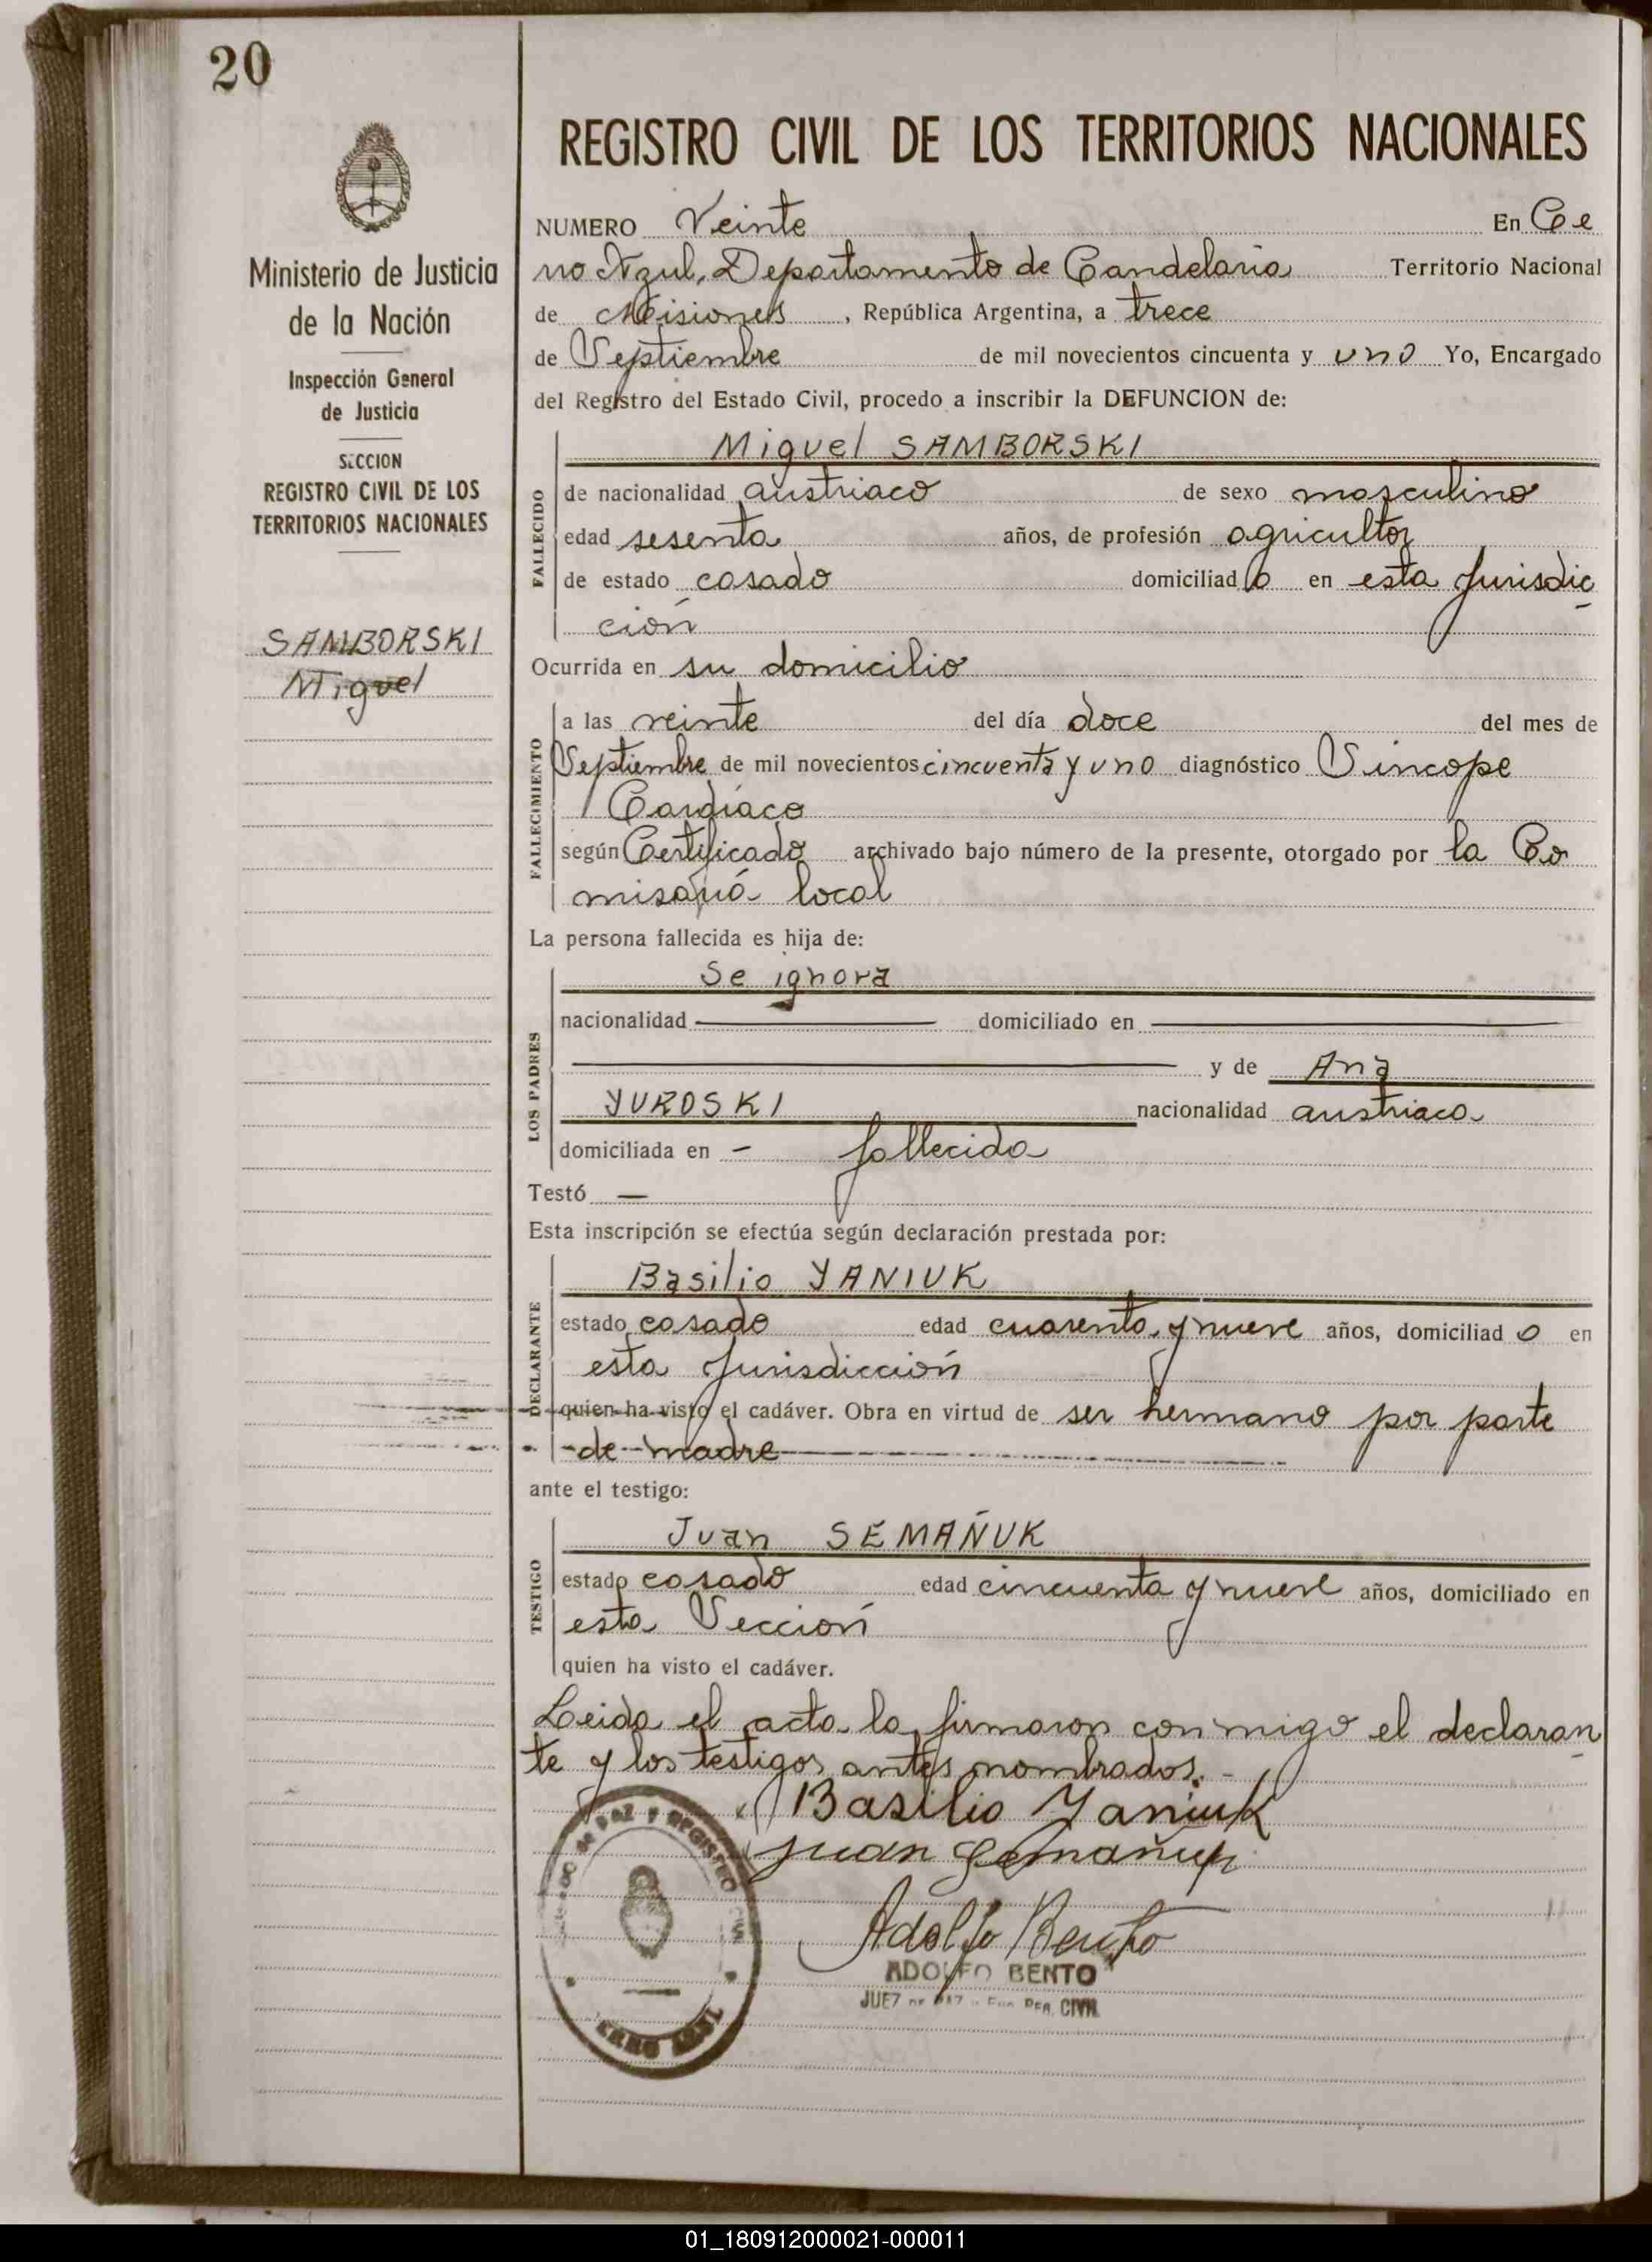 20
Ministerio de Justicia
de la Nación
Inspección General
de Justicia
SECCION
REGISTRO CIVIL DE LOS
TERRITORIOS NACIONALES
SAMBORSKI
Miguel
REGISTRO CIVIL DE LOS TERRITORIOS NACIONALES
NUMERO Veinte En Ce
rro Azul, Departamento de Candelaria Territorio Nacional
de Misiones, República Argentina, a trece
de Septiembre de mil novecientos cincuenta y uno Yo, Encargado
del Registro del Estado Civil, procedo a inscribir la DEFUNCION de:
FALLECIDO
Miguel SAMBORSKI
de nacionalidad austriaco de sexo masculino
edad sesenta años, de profesión agricultor
de estado casado domiciliado en esta Jurisdic
ción
Ocurrida en su domicilio
FALLECIMIENTO
a las veinte del día doce del mes de
Septiembre de mil novecientos cincuenta y uno diagnóstico Sincope
Cardíaco
según Certificado archivado bajo número de la presente, otorgado por la Co
misaría local
La persona fallecida es hija de:
LOS PADRES
Se ignora
nacionalidad — domiciliado en —
— y de Ana
YUROSKI nacionalidad austriaca
domiciliada en - fallecida
Testó —
Esta inscripción se efectúa según declaración prestada por:
DECLARANTE
Basilio YANIUK
estado casado edad cuarenta y nueve años, domiciliado en
esta Jurisdicción
quien ha visto el cadáver. Obra en virtud de ser hermano por parte
-de-madre
ante el testigo:
TESTIGO
Juan SEMAÑUK
estado casado edad cincuenta y nueve años, domiciliado en
esta Sección
quien ha visto el cadáver.
Leida el acta la firmaron conmigo el declaran
te y los testigos antes nombrados.-
Basilio Yaniuk
Juan Semañuk
Adolfo Bento
ADOLFO BENTO
JUEZ DE PAZ y Enc. REG. CIVIL
DE PAZ Y REGISTRO
CERRO AZUL
01_180912000021-000011